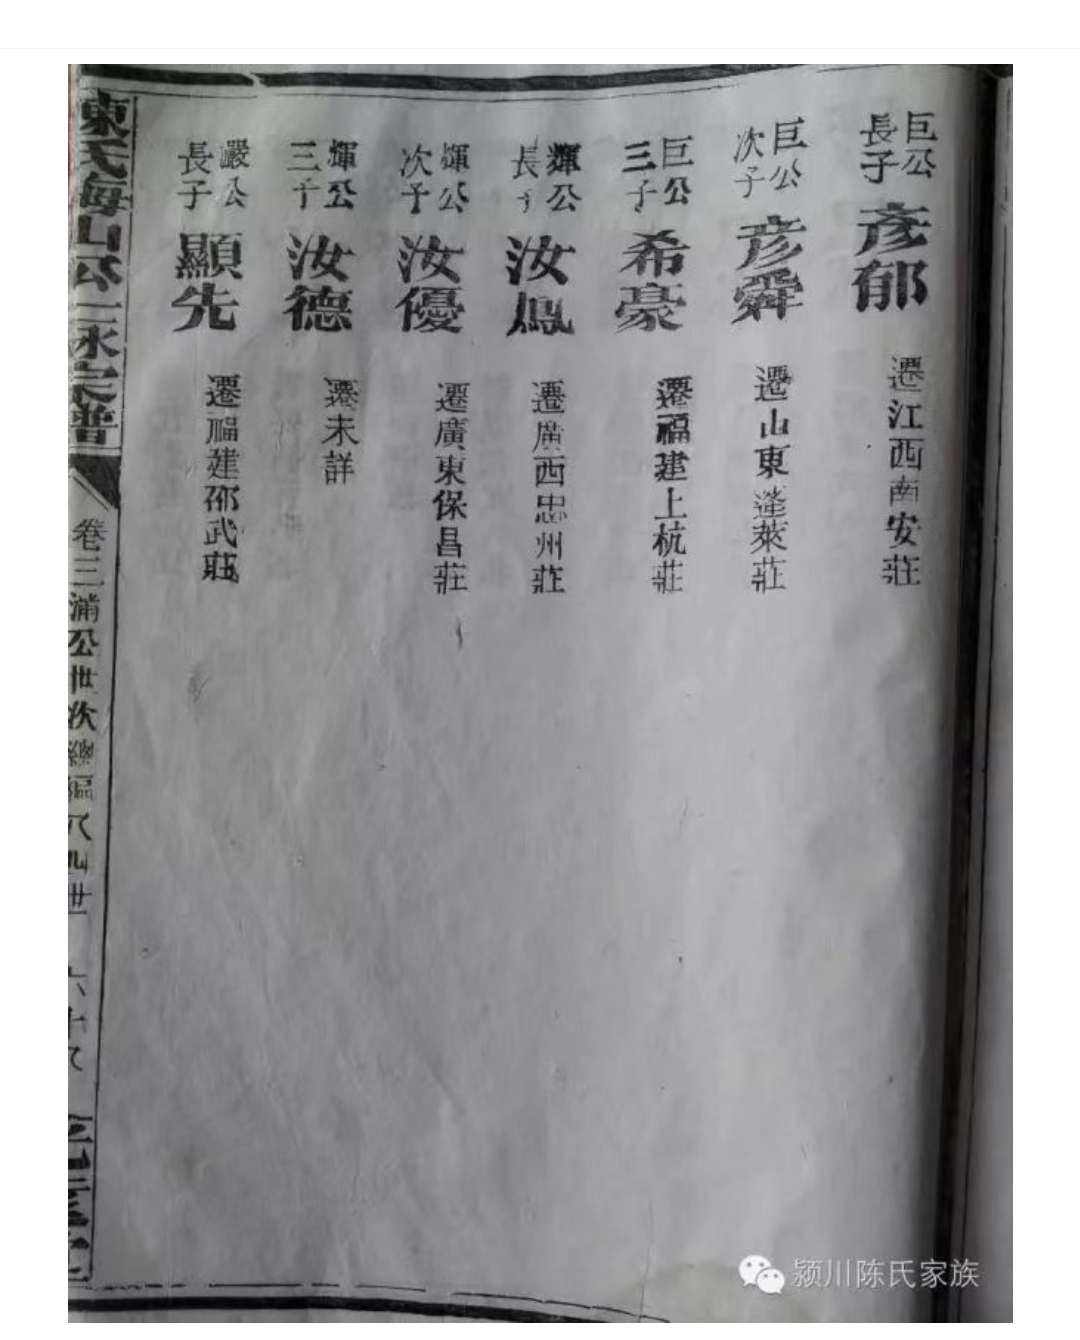 巨公長子 彥郁 遷江西南安莊
巨公次子 彦舜 遷山東蓬萊莊
巨公三子 希豪 遷福建上杭莊
輝公長子 汝鳳 遷廣西忠州莊
輝公次子 汝優 遷廣東保昌莊
輝公三子 汝德 遷未詳
嚴公長子 顯先 遷福建邵武莊
陳氏海山公一脉宗譜
卷三 滿公世次總編 世
颍川陈氏家族